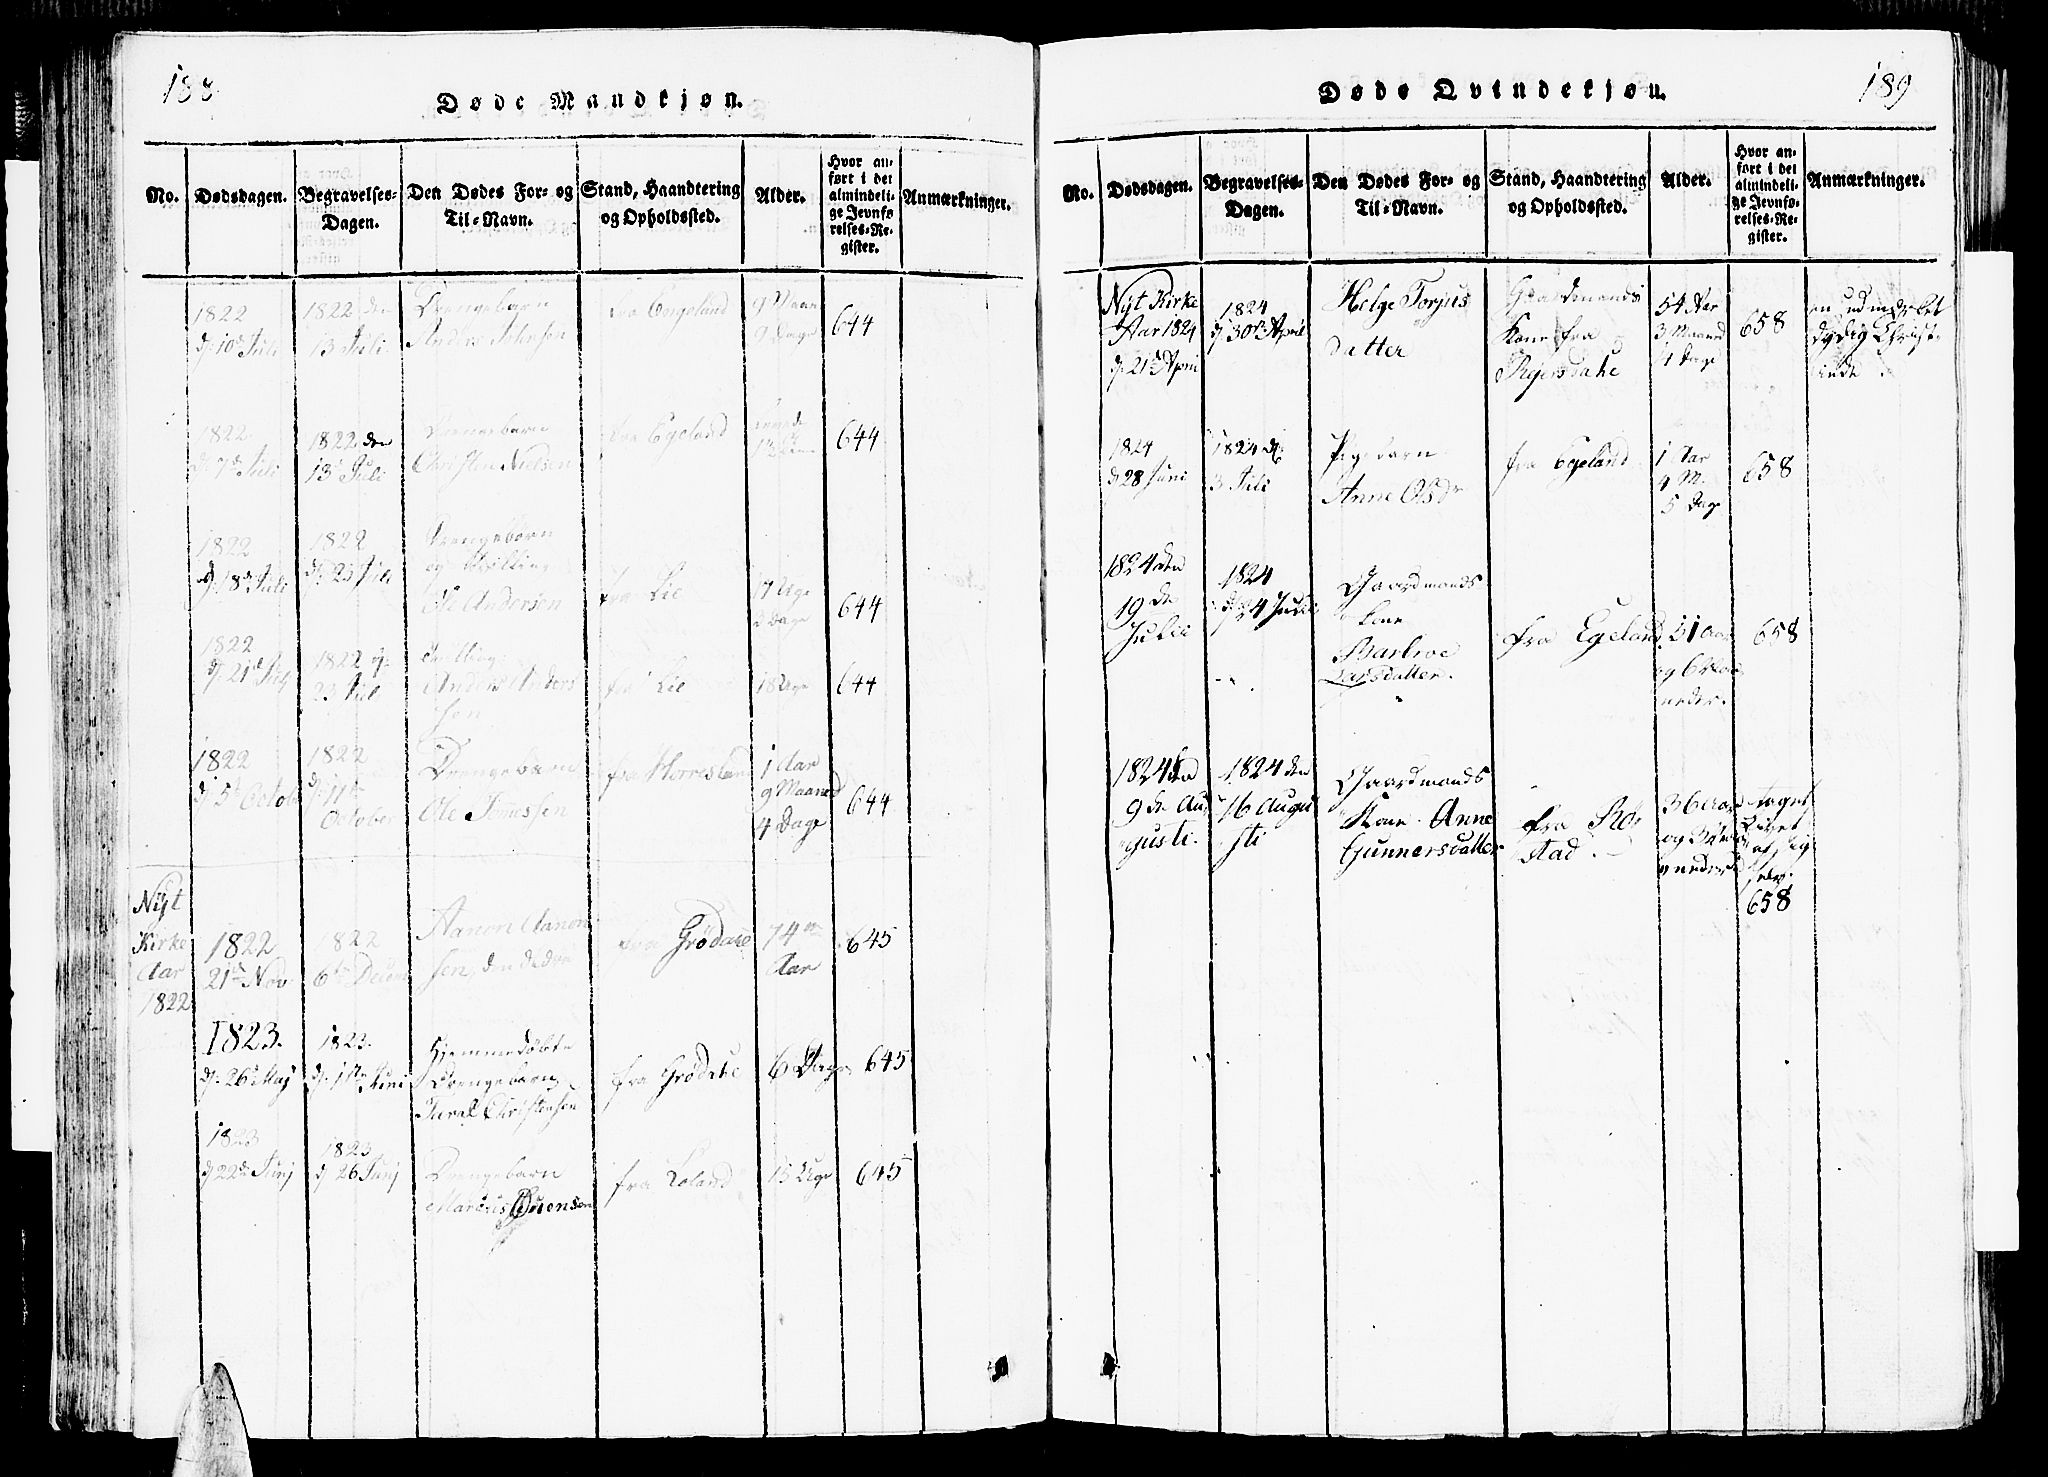 188
Døde Mandkjøn.
No.
Dødsdagen.
Begravelses-
Dagen.
Den Dødes For- og
Til-Navn.
Stand, Haandtering
og Opholdssted.
Alder.
Hvor an-
ført i det
almindeli-
ge Jevnfø
relses-Re-
gister.
Anmærkninger.
1822
d. 10de Juli
1822 den
13 Juli
Drengebarn
Anders Johnsen
fra Engeland
9 Maan
9 Dage
644
1822
d. 7de Juli
1822 den
13 Juli
Drengebarn
Christen Nielsen
fra Egeland
644
1822
d. 18de Juli
1822
d. 23 Juli
Drengebarn
og Tvilling
Ole Andersen
fra Lie
17 Uge
3 Dage
644
1822
d. 21de Juli
1822 d.
23 Juli
Tvilling
Anders Anders
sen
fra Lie
18 Uge
644
1822
d. 5te Octobe
1822
d. 11te
October
Drengebarn
Ole Tønnessen
fra Horresland
1 Aar
9 Maaned
4 Dage
644
Nyt
Kirke
Aar
1822
1822
21de Nov
1822
6te Decem
Aanon Aanon
sen, den
fra Grødale
74
Aar
645
1823.
d. 26 Maj
1823.
d. 1ste Juni
Hjemmedøbte
Drengebarn
Taral Christensen
fra Grødale
6 Dage
645
1823
d 22de Junj
1823
d 26 Junj
Drengebarn
Marcus
fra Loland
15 Uge
645
189
Døde Qvindekjøn.
No.
Dødsdagen.
Begravelses-
Dagen.
Den Dødes For- og
Til-Navn.
Stand, Haandtering
og Opholdssted.
Alder.
Hvor an-
ført i det
almindeli-
ge Jevnfø-
relses-Re-
gister.
Anmærkninger.
Nyt Kirke
Aar 1824
d. 21de Apri
1824
d. 30te April
Helge Torjus
datter
Gaardmands
Kone fra
54 Aar
3 Maaned
4 Dage
658
en udmærket
dydig Christ-
inde
1824
d 28 Juni
1824 d.
3 Juli
Pigebarn
Anne Olsdr
fra Egeland
1 Aar
4 M.
5 Dage
658
1824 den
19de
Julii
1824
d. 24 Julii
Gaardmands
Kone
Barbroe
Larsdatter.
fra Egeland
51 Aar
og 6 Maa
neder.
658
1824 den
9de Au
gusti.
1824 den
16 Augu
sti
Gaardmands
Kone Anne
Gunnersdatter
fra Rø
stad.
36 Aar
og 3 Ma
aneder
taget
Livet
af sig
selv.
658